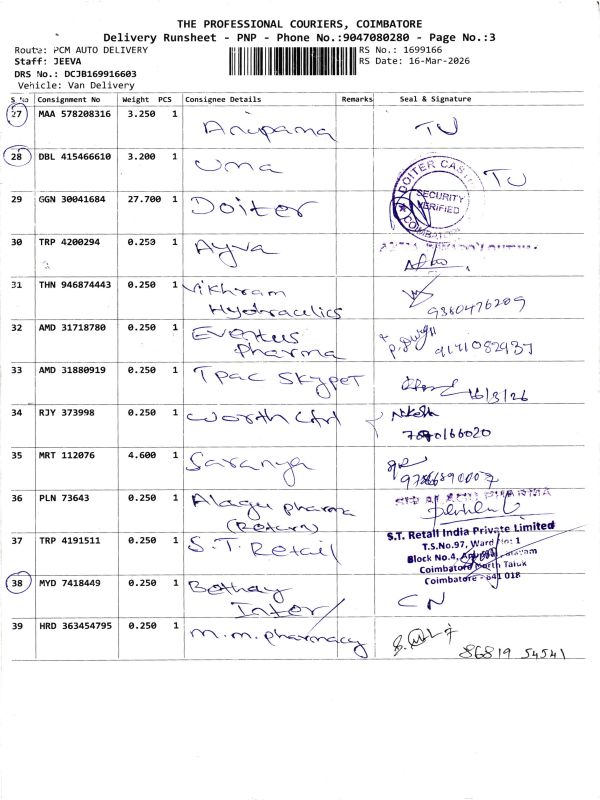 THE PROFESSIONAL COURIERS, COIMBATORE
Delivery Runsheet - PNP - Phone No.:9047080280 - Page No.:3
Route: PCM AUTO DELIVERY
RS No.: 1699166
Staff: JEEVA
RS Date: 16-Mar-2026
DRS No.: DCJB169916603
Vehicle: Van Delivery
S No Consignment No Weight PCS Consignee Details Remarks Seal & Signature
27 MAA 578208316 3.250 1 Anupama TU
28 DBL 415466610 3.200 1 Uma TU
29 GGN 30041684 27.700 1 Doiter
DOITER CAST
SECURITY
VERIFIED
COIMBATORE
30 TRP 4200294 0.250 1 Ayva
31 THN 946874443 0.250 1 Vikhram
Hydraculics 9360476209
32 AMD 31718780 0.250 1 Eventus
Pharma 9171082937
33 AMD 31880919 0.250 1 Tpac Skypet
16/3/26
34 RJY 373998 0.250 1 Worth
35 MRT 112076 4.600 1 Saranya
36 PLN 73643 0.250 1 Alagu pharma
(Return)
PHARMA
37 TRP 4191511 0.250 1 S.T. Retail
S.T. Retail India Private Limited
T.S.No.97, Ward No: 1
Block No.4,
Coimbatore North Taluk
Coimbatore - 641 018
38 MYD 7418449 0.250 1 Bothay
Inter CN
39 HRD 363454795 0.250 1 m.m. pharmacy
86819 54541